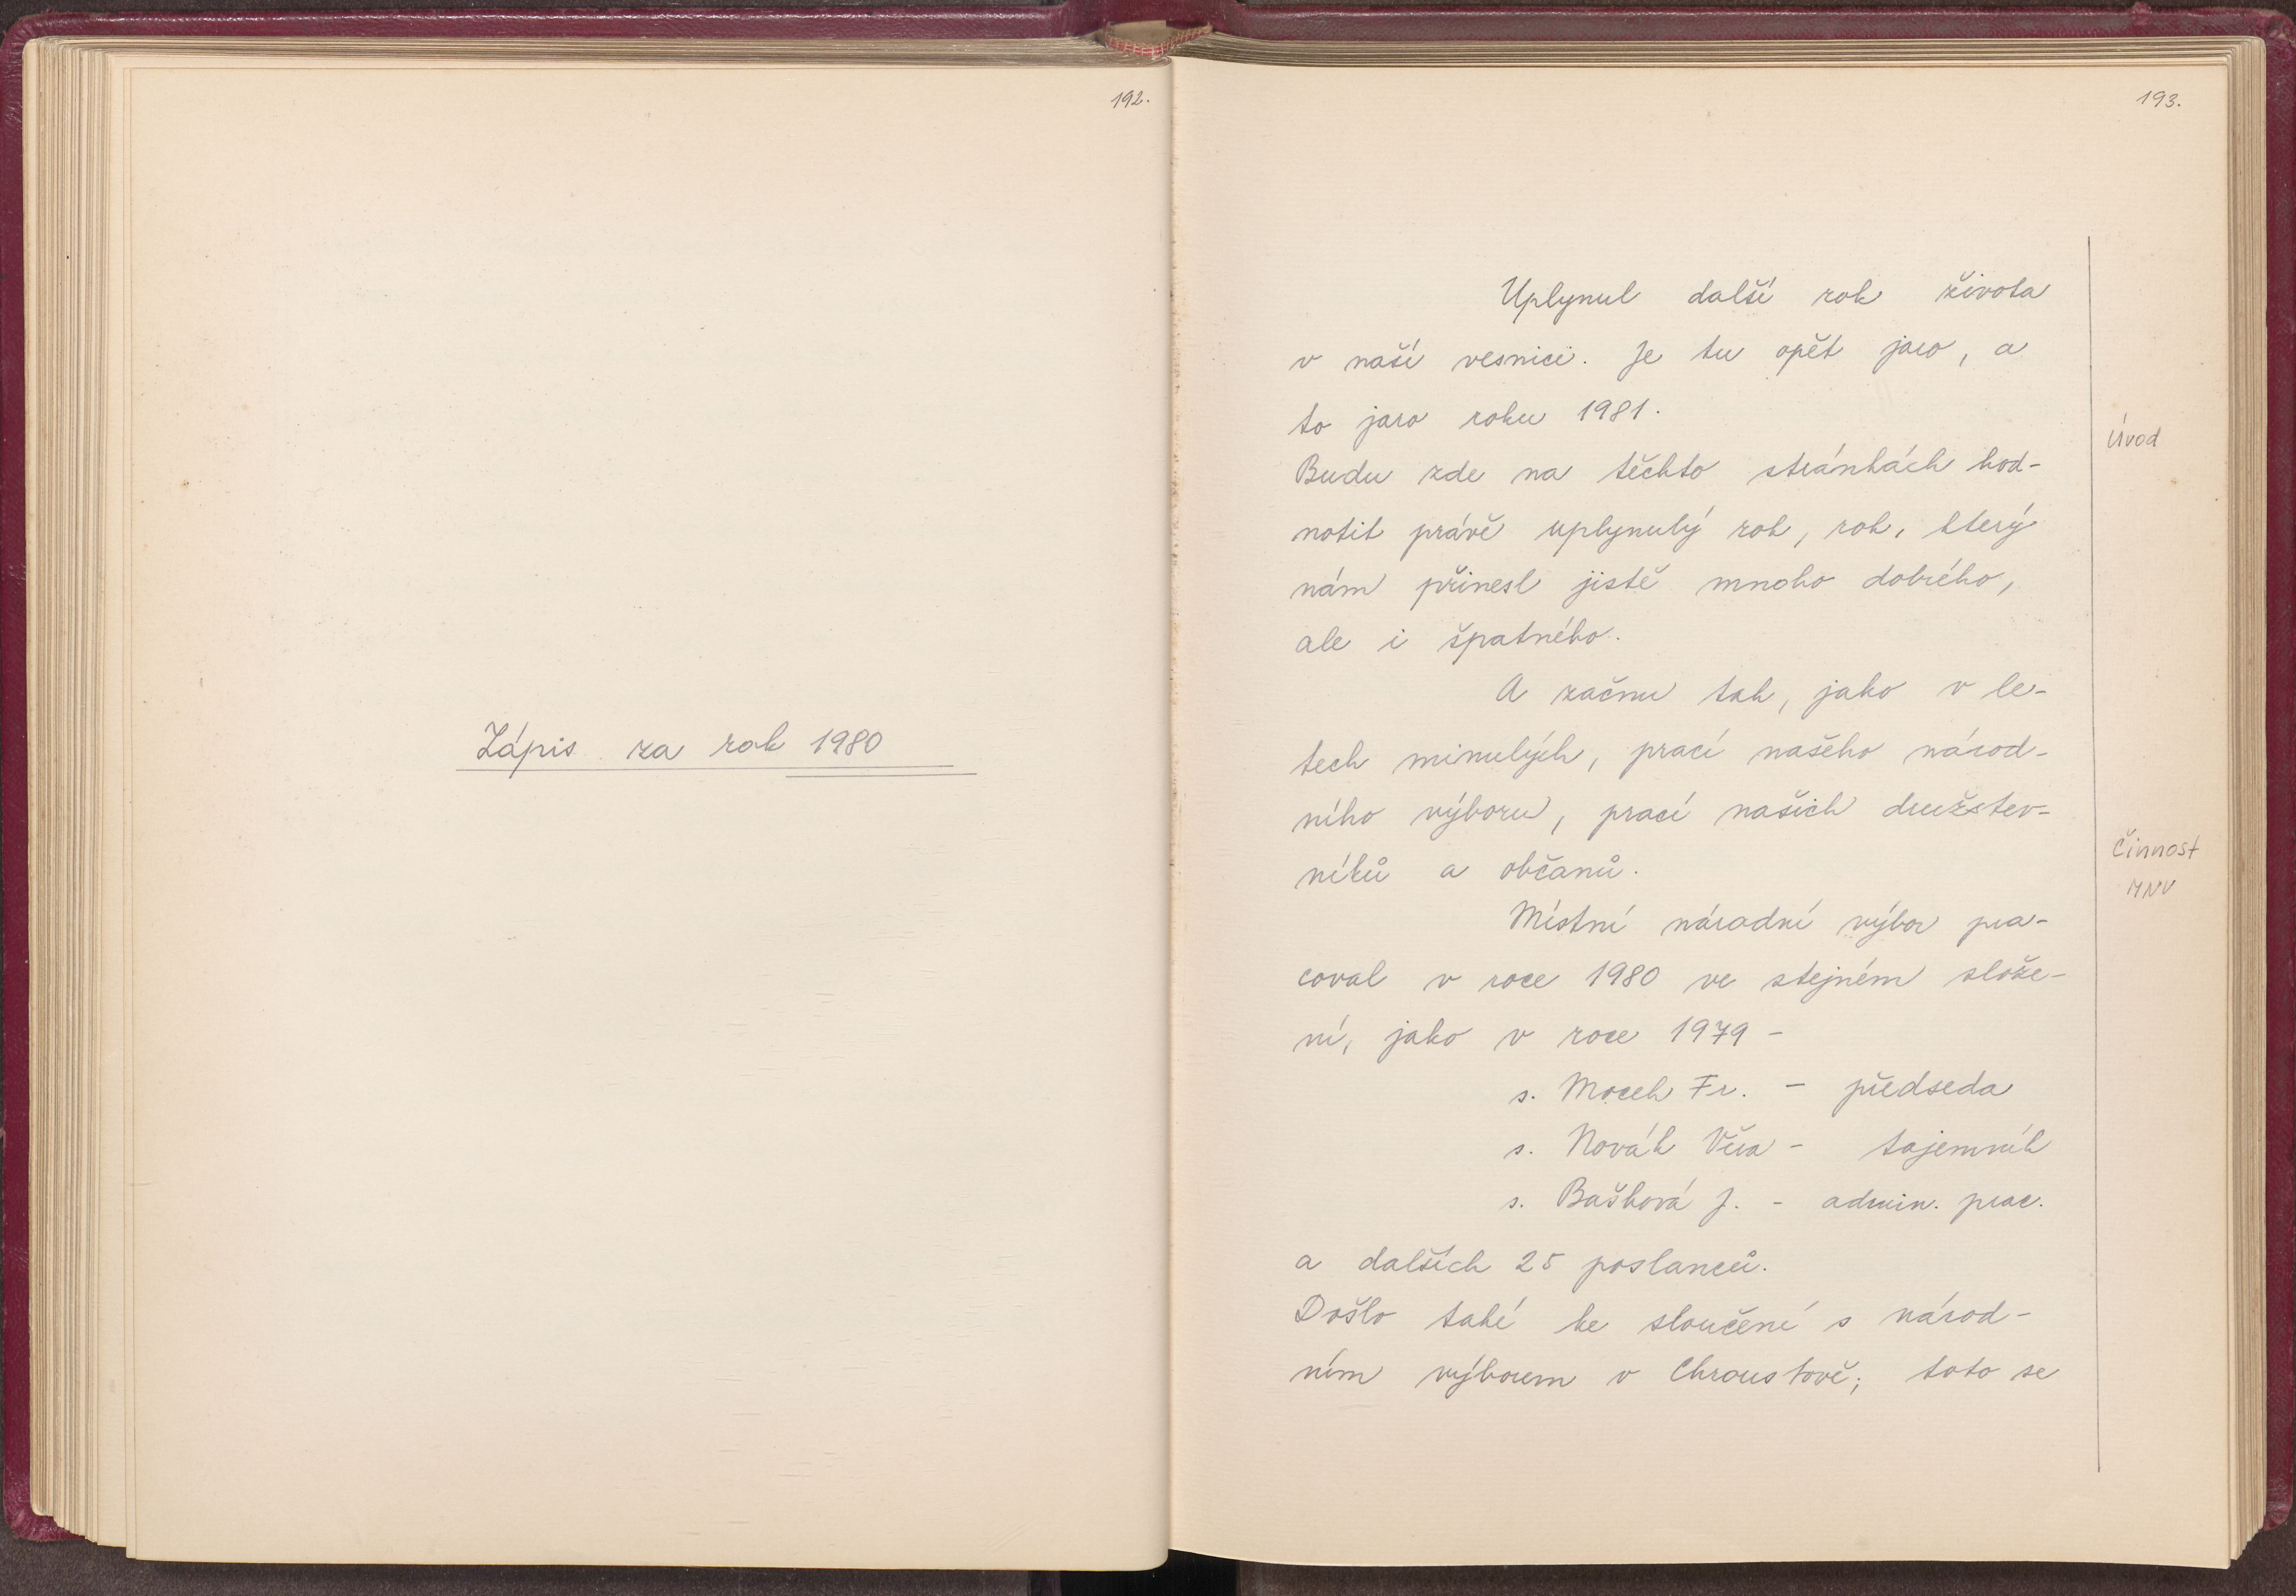 192.
Zápis za rok 1980
193.
Uplynul další rok života
v naší vesnici. Je tu opět jaro, a
to jaro roku 1981.
Úvod
Budu zde na těchto stránkách hod-
notit právě uplynulý rok, rok, který
nám přinesl jistě mnoho dobrého,
ale i špatného.
A začnu tak, jako v le-
tech minulých, prací našeho národ-
ního výboru, prací našich družstev-
níků a občanů.
Činnost
MNV
Místní národní výbor pra-
coval v roce 1980 ve stejném slože-
ní, jako v roce 1979 -
s. Mocek Fr. - předseda
s. Novák - tajemník
s. Bašková J. - admin. prac.
a dalších 25 poslanců.
Došlo také ke sloučení s národ-
ním výborem v Chroustově; toto se